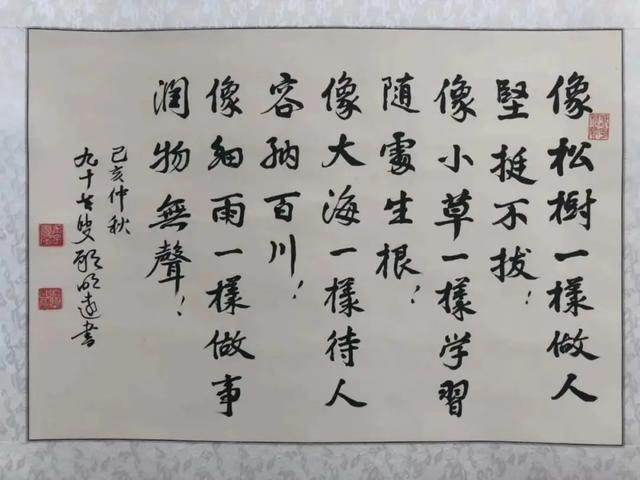 像松樹一樣做人
堅挺不拔！
像小草一樣学習
随處生根！
像大海一樣待人
容納百川！
像細雨一樣做事
潤物無聲！
己亥仲秋
九十老叟顧明遠書